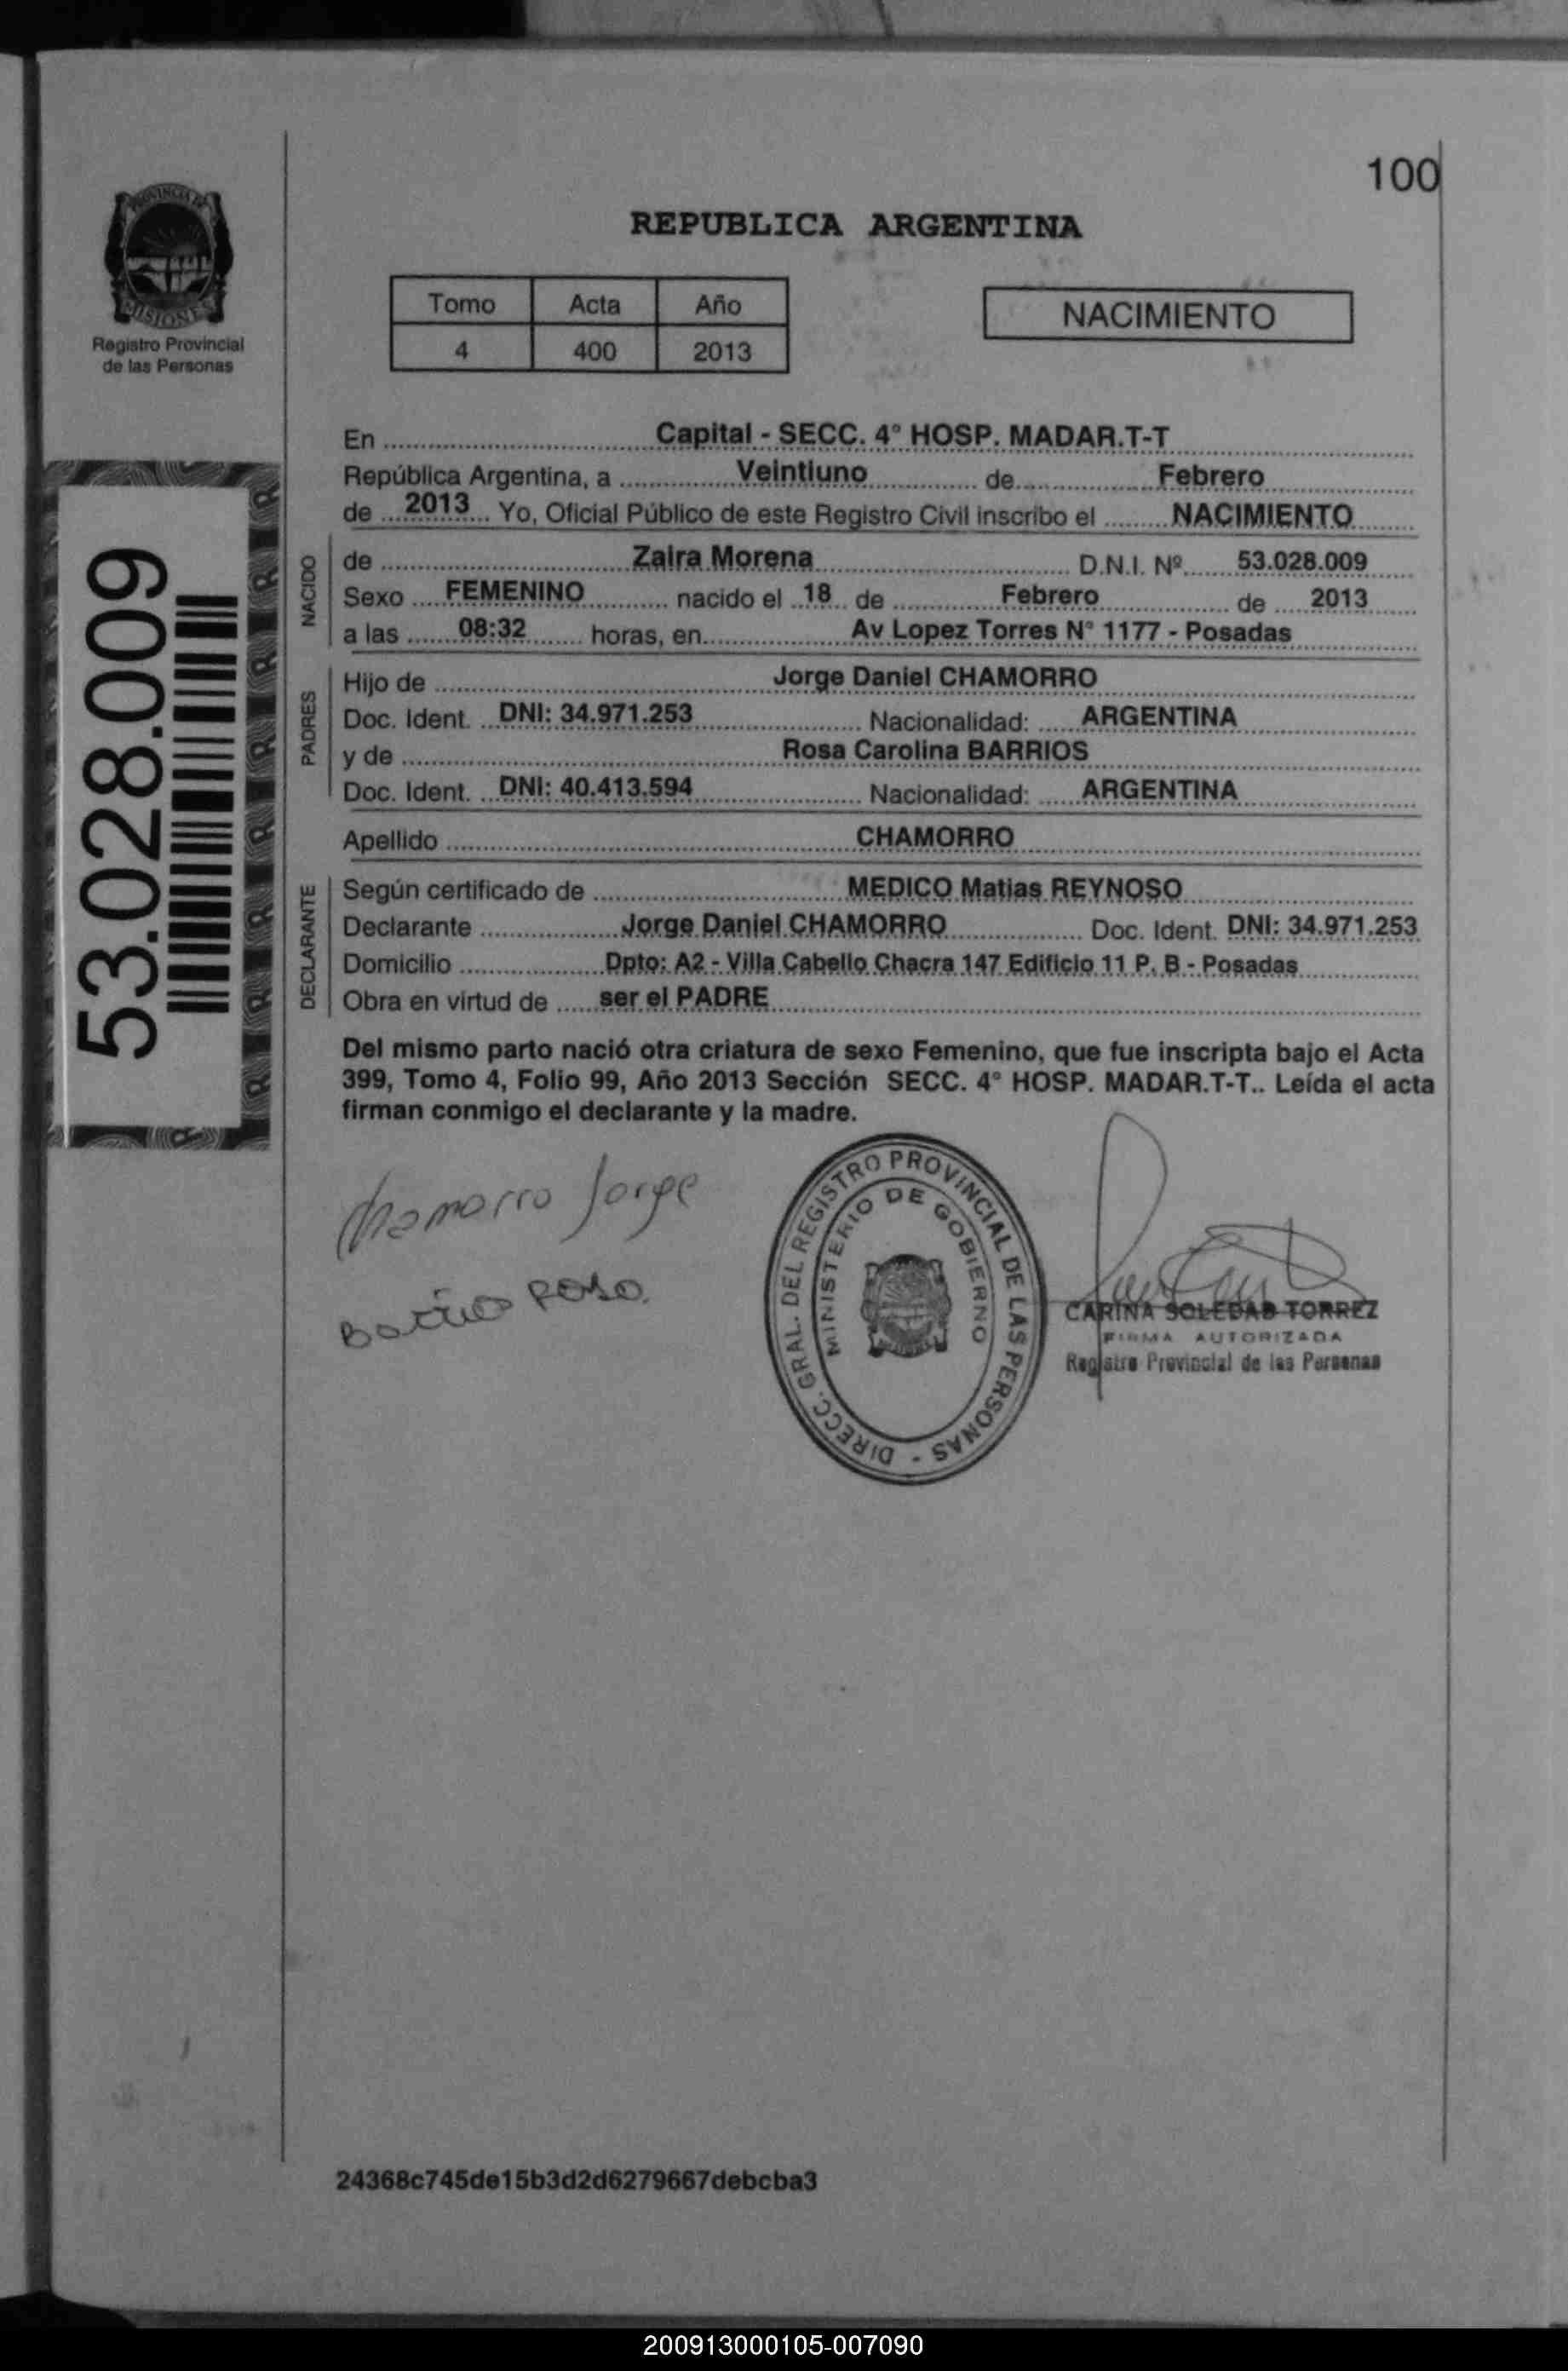 100
PROVINCIA DE
MISIONES
Registro Provincial
de las Personas
REPUBLICA ARGENTINA
Tomo Acta Año
4 400 2013
NACIMIENTO
53.028.009
En ........ Capital - SECC. 4° HOSP. MADAR.T-T
República Argentina, a ........ Veintiuno ........ de ........ Febrero
de .... 2013 ... Yo, Oficial Público de este Registro Civil inscribo el ........ NACIMIENTO
NACIDO
de ........ Zaira Morena ........ D.N.I. Nº ...... 53.028.009
Sexo .... FEMENINO ........ nacido el .. 18 .. de ........ Febrero ........ de ..... 2013
a las ...... 08:32 ...... horas, en ........ Av Lopez Torres N° 1177 - Posadas
PADRES
Hijo de ........ Jorge Daniel CHAMORRO
Doc. Ident. ... DNI: 34.971.253 ........ Nacionalidad: ..... ARGENTINA
y de ........ Rosa Carolina BARRIOS
Doc. Ident. ... DNI: 40.413.594 ........ Nacionalidad: ..... ARGENTINA
Apellido ........ CHAMORRO
DECLARANTE
Según certificado de ........ MEDICO Matias REYNOSO
Declarante ........ Jorge Daniel CHAMORRO ........ Doc. Ident. DNI: 34.971.253
Domicilio ........ Dpto: A2 - Villa Cabello Chacra 147 Edificio 11 P. B - Posadas
Obra en virtud de ..... ser el PADRE
Del mismo parto nació otra criatura de sexo Femenino, que fue inscripta bajo el Acta
399, Tomo 4, Folio 99, Año 2013 Sección SECC. 4° HOSP. MADAR.T-T.. Leída el acta
firman conmigo el declarante y la madre.
Chamorro Jorge
Barrios Rosa.
DIRECC. GRAL. DEL REGISTRO PROVINCIAL DE LAS PERSONAS -
MINISTERIO DE GOBIERNO
CARINA SOLEDAD TORREZ
FIRMA AUTORIZADA
Registro Provincial de las Personas
24368c745de15b3d2d6279667debcba3
200913000105-007090